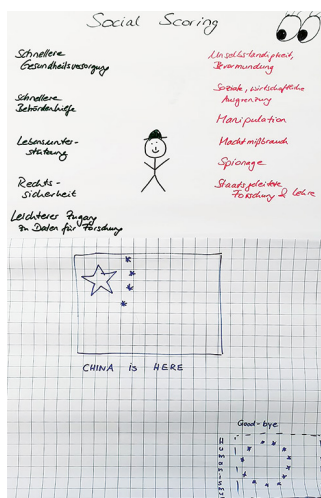 Social Scoring
Schnellere
Gesundheitsversorgung
Schnellere
Behördenhilfe
Lebensunter-
stützung
Rechts-
sicherheit
Leichterer Zugang
zu Daten für Forschung
Unselbständigkeit,
Bevormundung
Soziale, wirtschaftliche
Ausgrenzung
Manipulation
Machtmißbrauch
Spionage
Staatsgeleitete
Forschung & Lehre
CHINA is HERE
Good-bye
HUMANISMUS